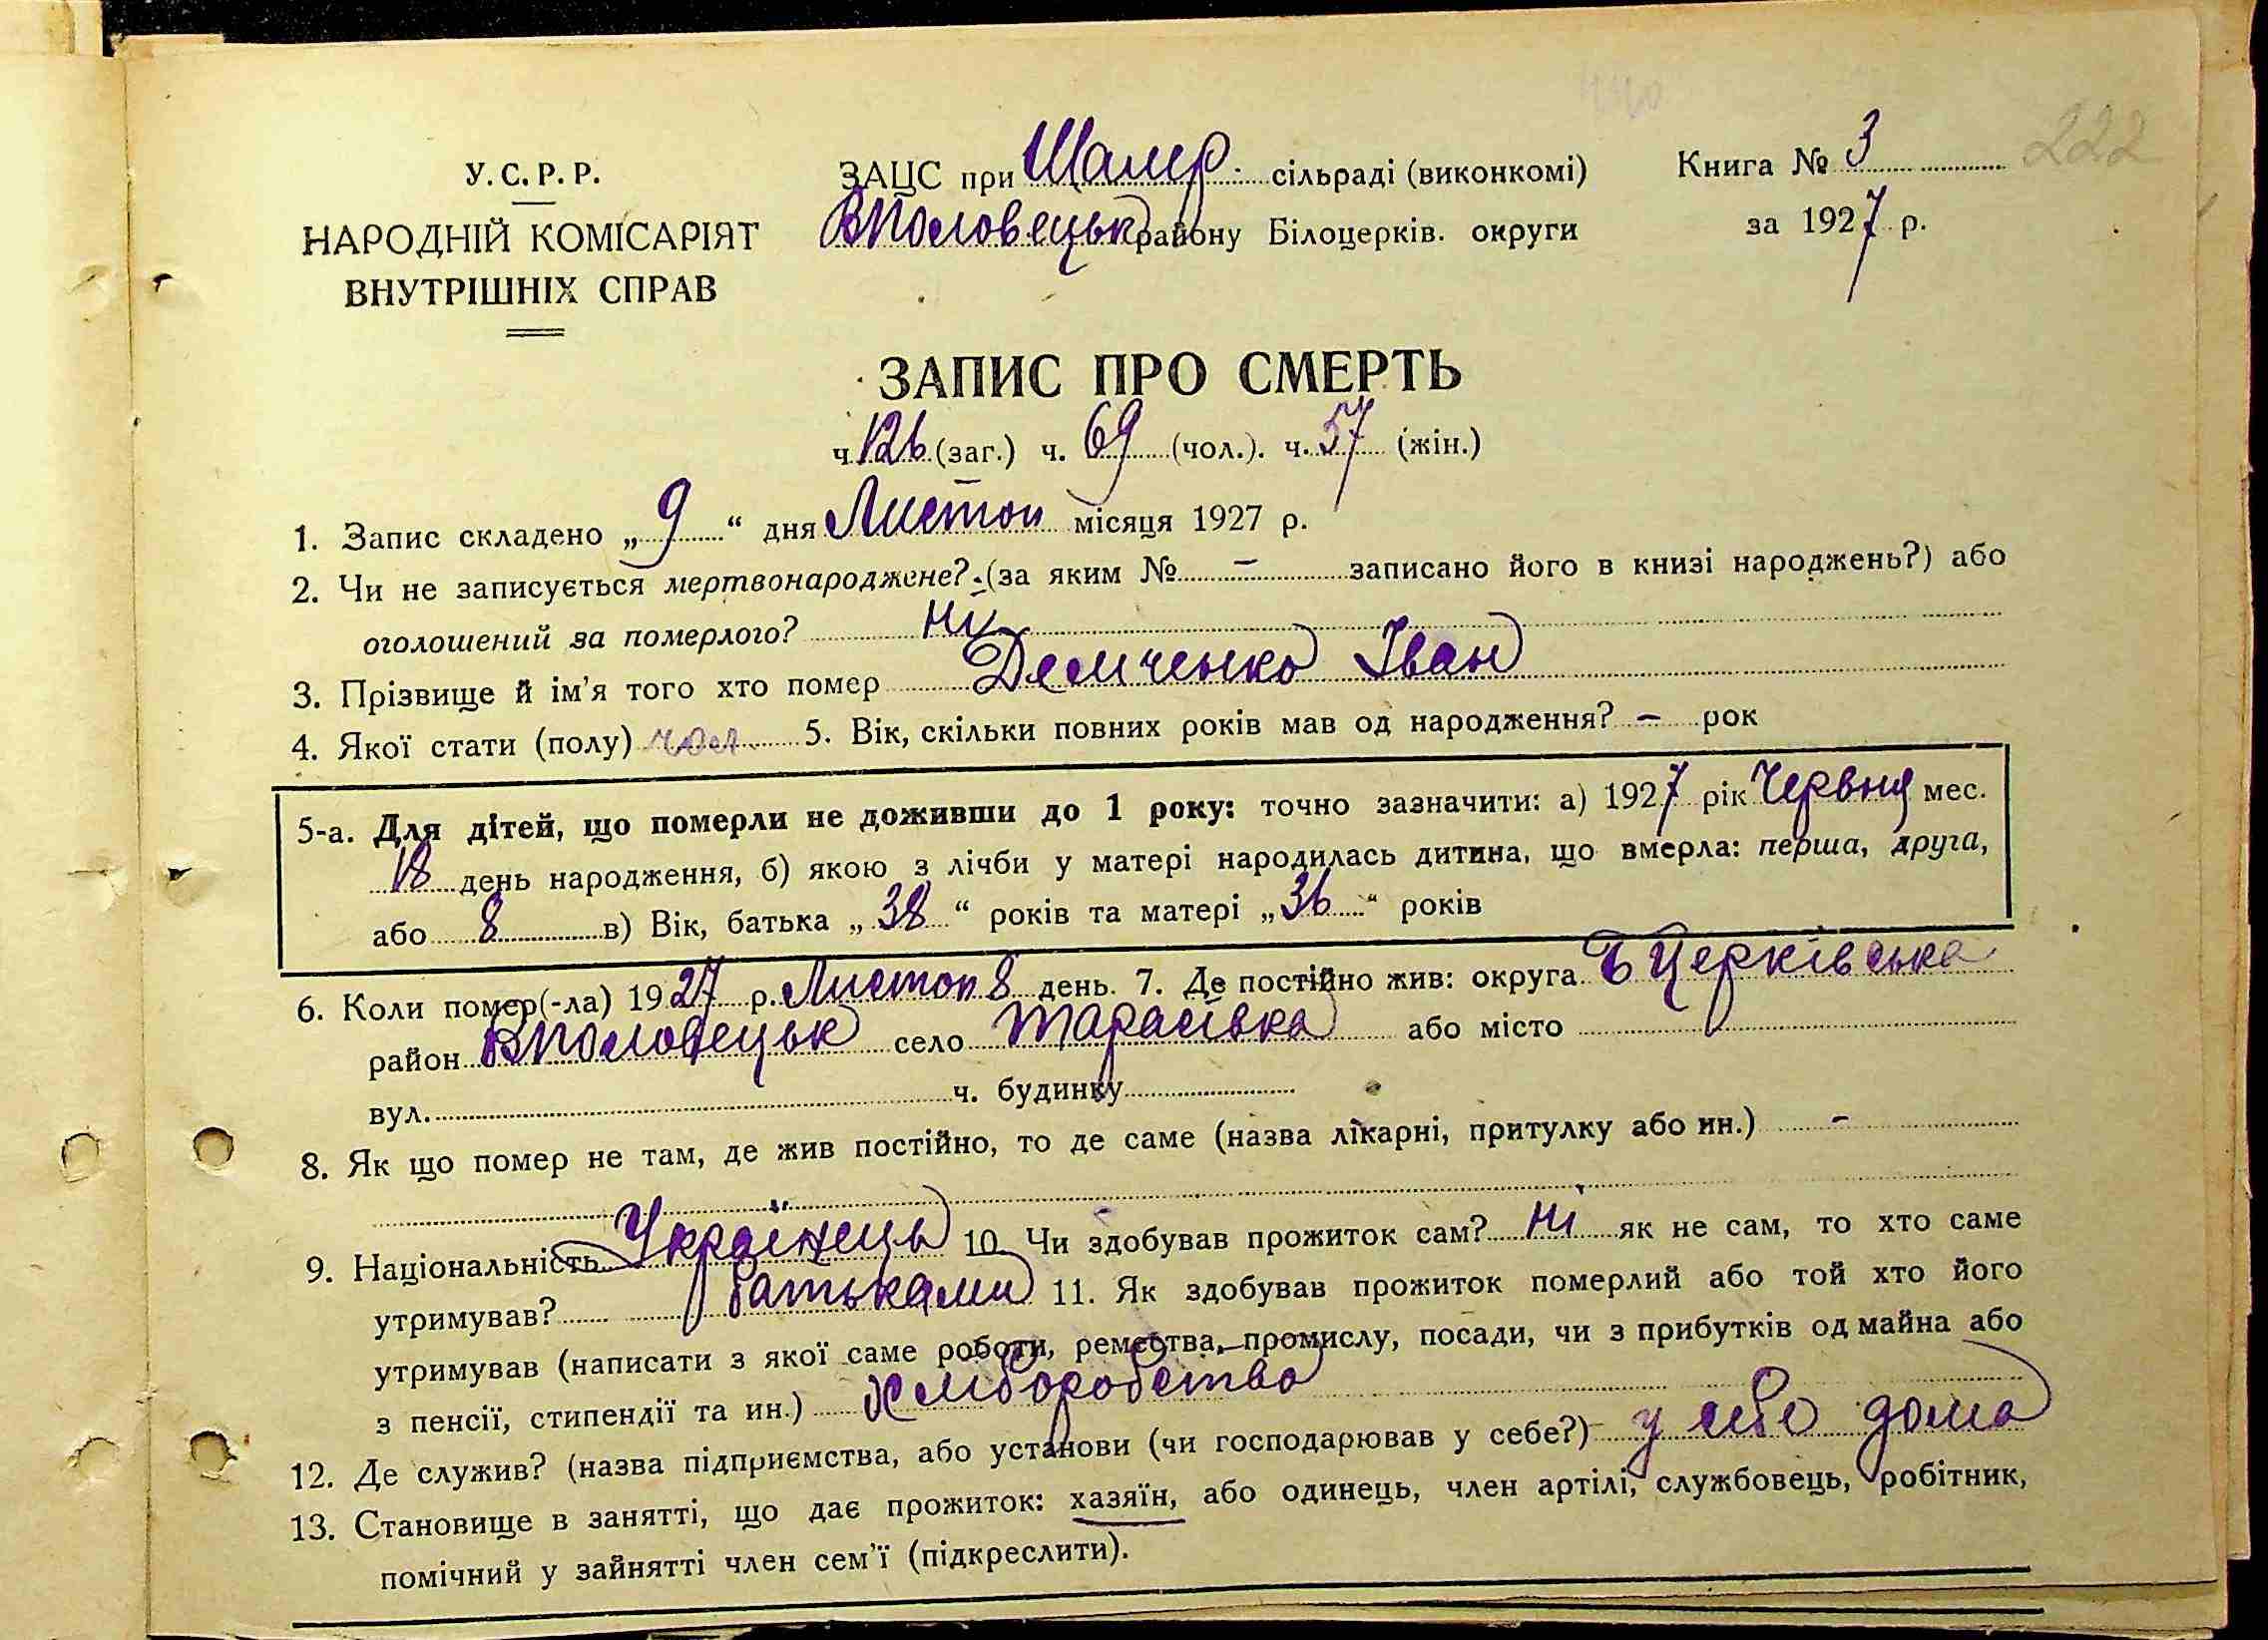 222
У. С. Р. Р.
НАРОДНІЙ КОМІСАРІЯТ
ВНУТРІШНІХ СПРАВ
ЗАЦС при Шамр. сільраді (виконкомі)
ВПоловецьк району Білоцерків. округи
Книга № 3
за 1927 р.
ЗАПИС ПРО СМЕРТЬ
ч. 126 (заг.) ч. 69 (чол.). ч. 57 (жін.)
1. Запис складено „ 9 “ дня Листоп місяця 1927 р.
2. Чи не записується мертвонароджене? (за яким № – записано його в книзі народжень?) або
оголошений за померлого? ні
3. Прізвище й ім’я того хто помер Демченко Іван
4. Якої стати (полу) чол. 5. Вік, скільки повних років мав од народження? – рок
5-а. Для дітей, що померли не доживши до 1 року: точно зазначити: а) 1927 рік Червня мес.
18 день народження, б) якою з лічби у матері народилась дитина, що вмерла: перша, друга,
або 8 в) Вік, батька „ 38 “ років та матері „ 36 “ років
6. Коли помер(-ла) 1927 р. Листоп 8 день. 7. Де постійно жив: округа БЦерківська
район ВПоловецьк село Тарасівка або місто
вул. ч. будинку
8. Як що помер не там, де жив постійно, то де саме (назва лікарні, притулку або ин.) -
9. Національність Українець 10. Чи здобував прожиток сам? ні як не сам, то хто саме
утримував? батьками 11. Як здобував прожиток померлий або той хто його
утримував (написати з якої саме роботи, ремества, промислу, посади, чи з прибутків од майна або
з пенсії, стипендії та ин.) хліборобство
12. Де служив? (назва підприємства, або установи (чи господарював у себе?) у себе дома
13. Становище в занятті, що дає прожиток: хазяїн, або одинець, член артілі, службовець, робітник,
помічний у зайнятті член сем’ї (підкреслити).